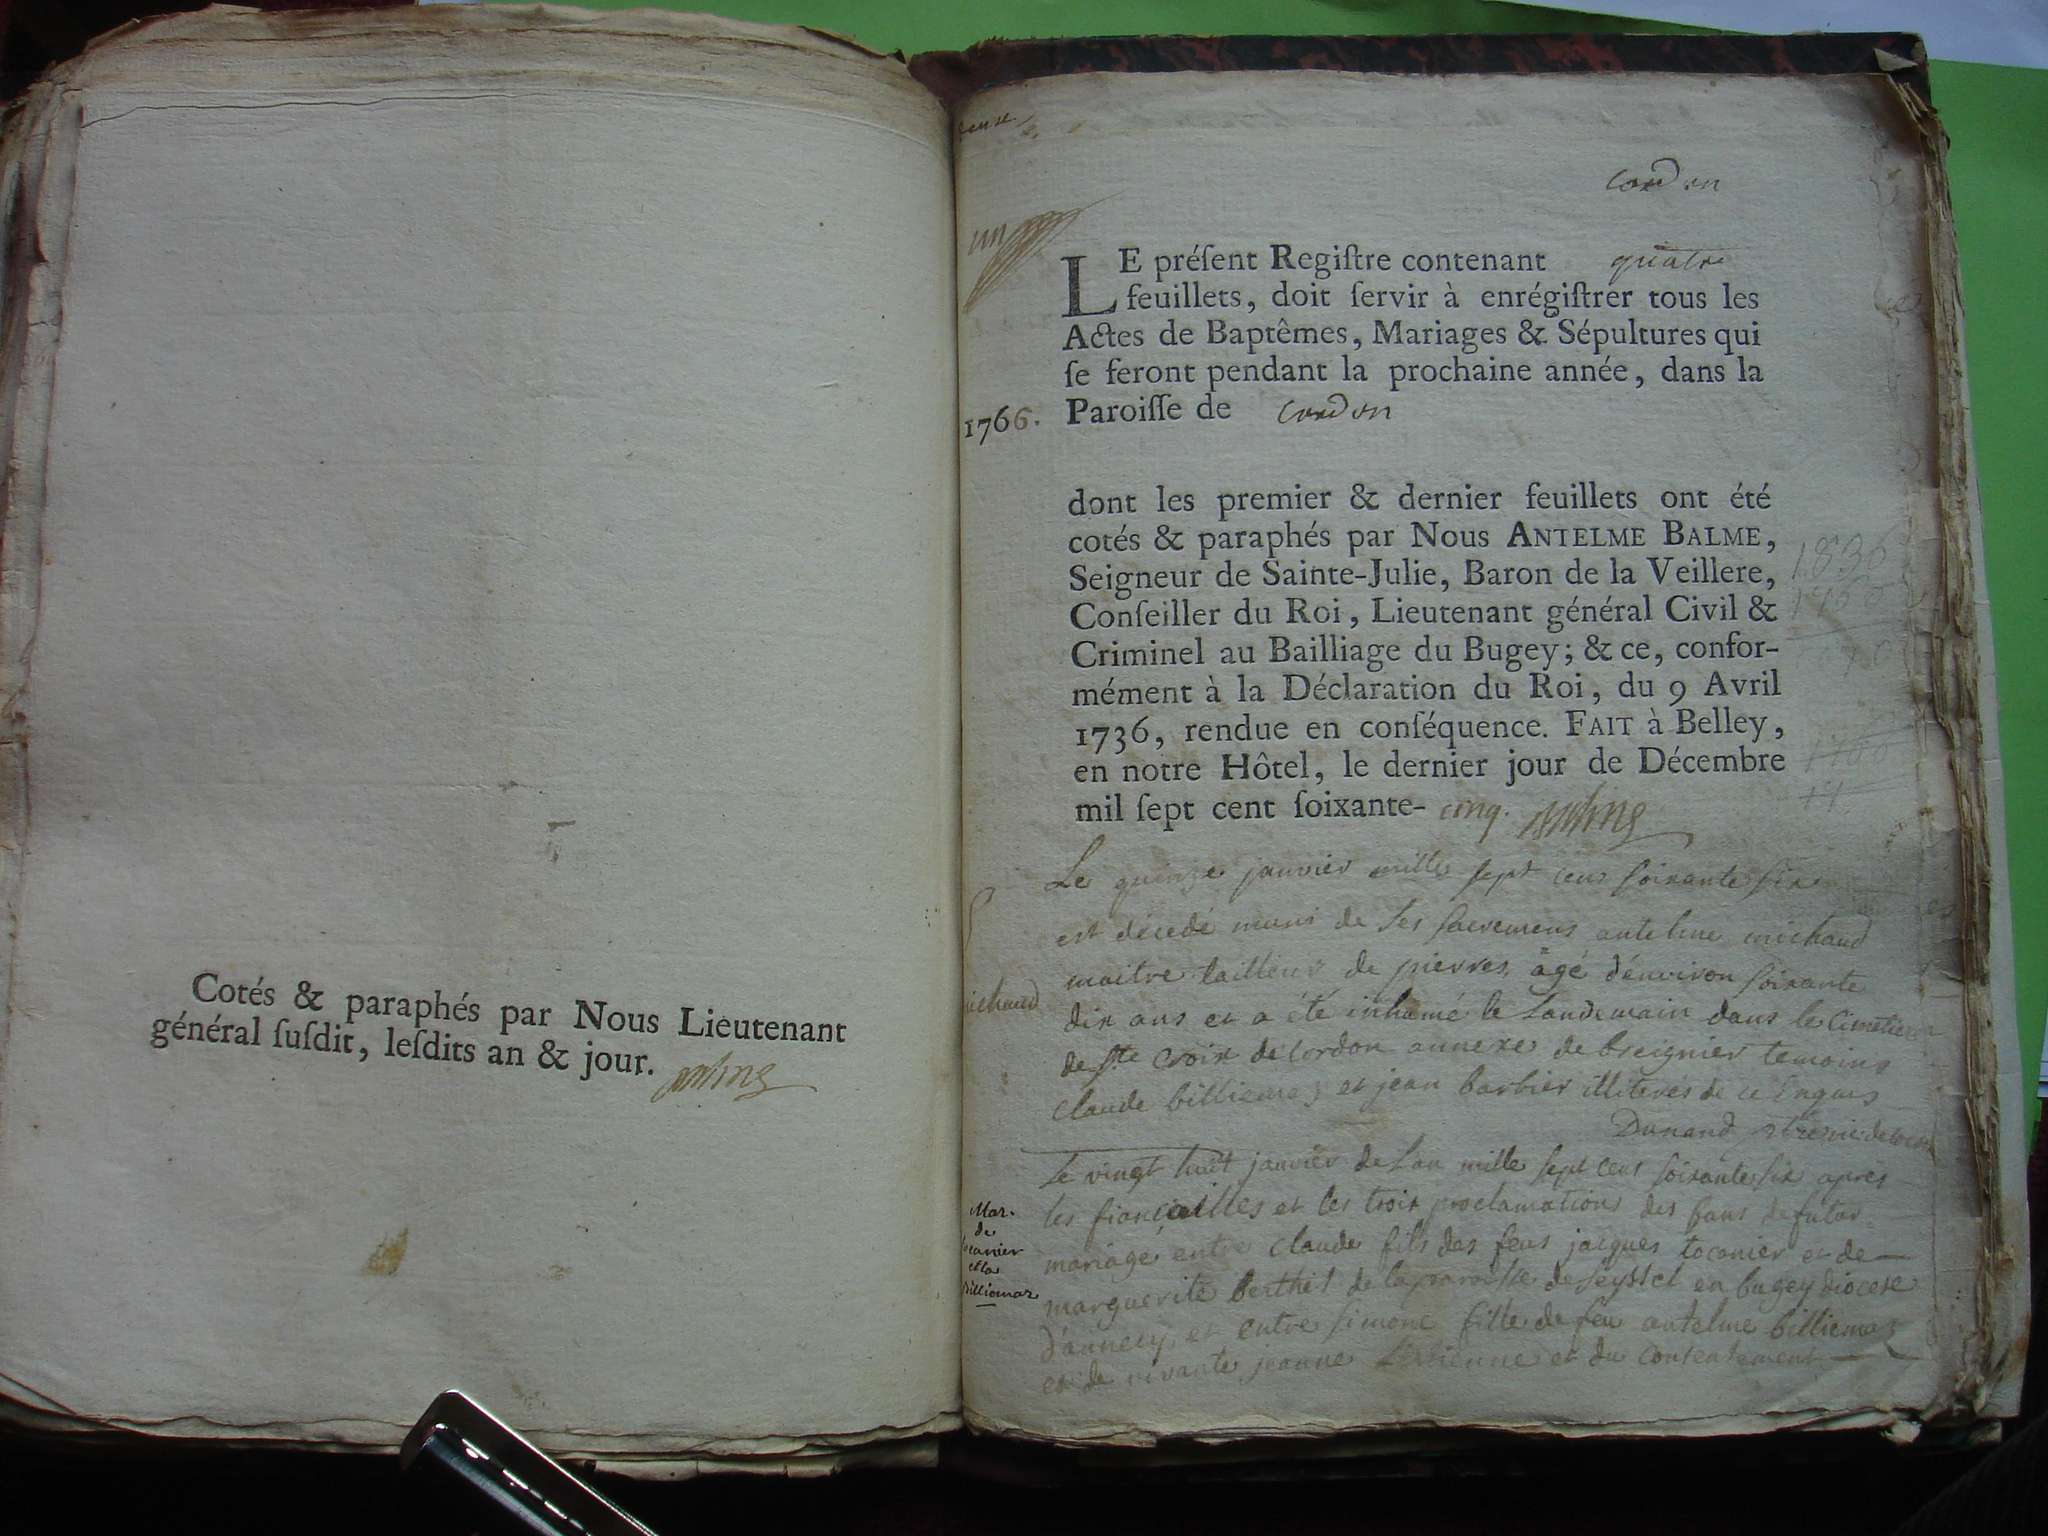 Cotés & paraphés par Nous Lieutenant
général ſuſdit, leſdits an & jour.
cordon
un
LE préſent Regiſtre contenant quatre
feuillets, doit ſervir à enrégiſtrer tous les
Actes de Baptêmes, Mariages & Sépultures qui
ſe feront pendant la prochaine année, dans la
1766. Paroiſſe de cordon
dont les premier & dernier feuillets ont été
cotés & paraphés par Nous ANTELME BALME,
Seigneur de Sainte-Julie, Baron de la Veillere,
Conſeiller du Roi, Lieutenant général Civil &
Criminel au Bailliage du Bugey; & ce, confor-
mément à la Déclaration du Roi, du 9 Avril
1736, rendue en conſéquence. FAIT à Belley,
en notre Hôtel, le dernier jour de Décembre
mil ſept cent ſoixante- cinq.
1836
Le quinze janvier mille sept cens soixante six
est décedé muni de ses sacremens antelme michaud
maitre tailleur de pierres, âgé d'environ soixante
dix ans et a été inhumé le landemain dans le cimetiere
de Ste croix de cordon annexe de breignier temoins
claude billiemaz et jean barbier illiterés de ce enquis
Dunand
Le vingt huit janvier de l'an mille sept cens soixante six apres
les fiançailles et les trois proclamations des bans de futur
mariage entre claude fils des feus jacques toconier et de
marguerite berthet de la paroisse de seyssel en bugey diocese
d'annecy, et entre simone fille de feu antelme billiemaz
et de vivante jeanne et du consentement
Mar.
de
et la
Billiemaz